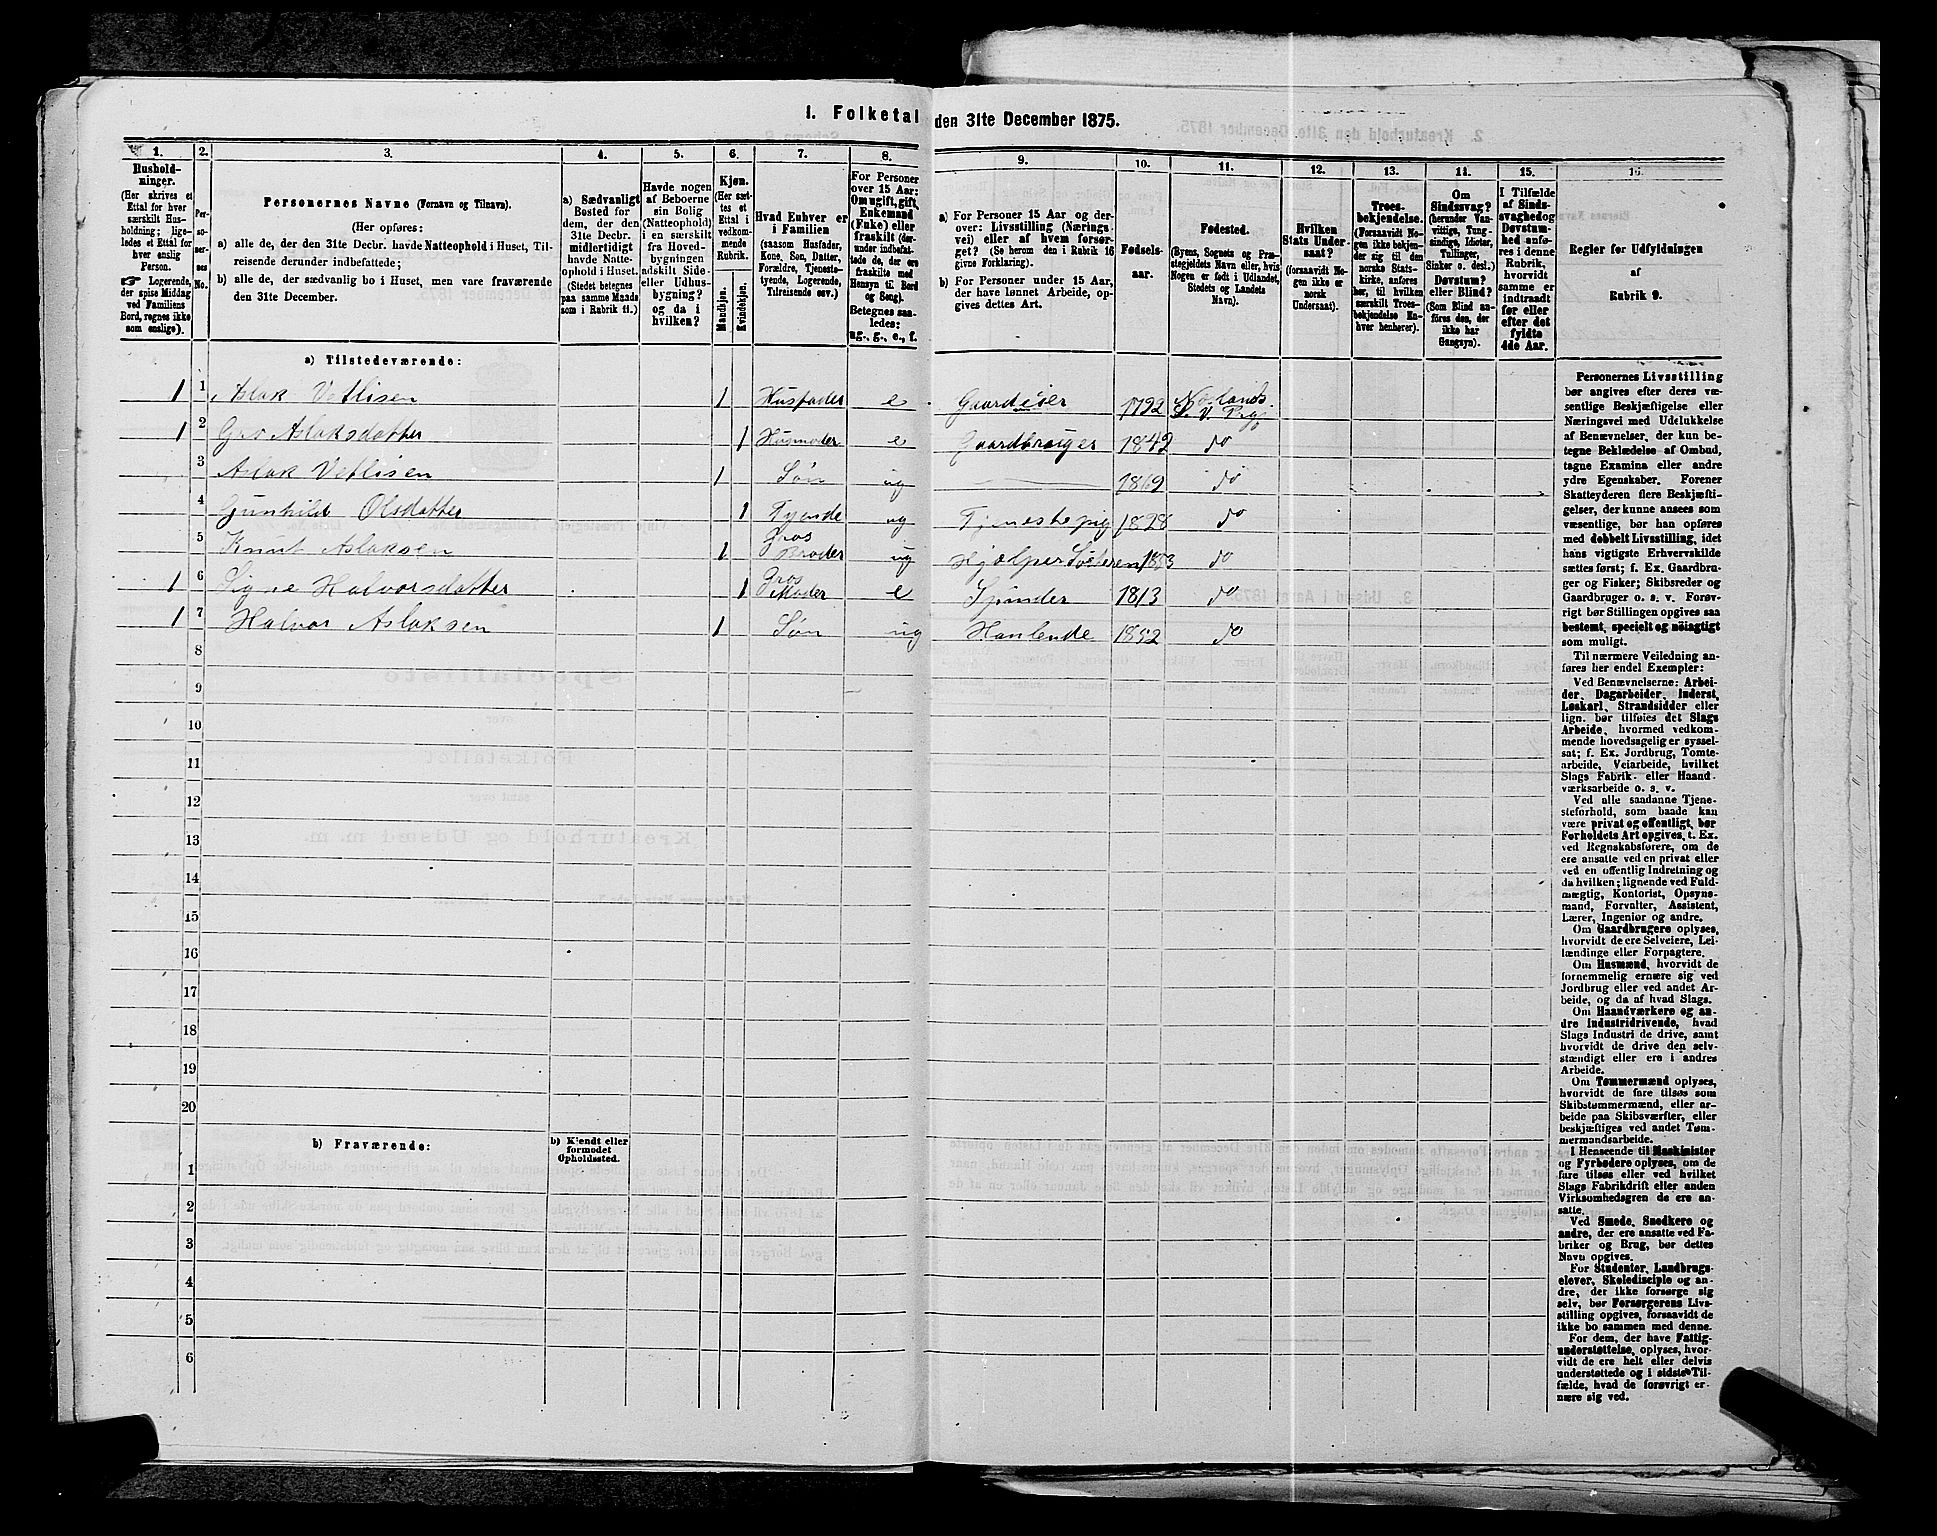 1. Folketal den 31te December 1875.
1.
2.
3.
4.
5.
6.
7.
8.
9.
10.
11.
12.
13.
14.
15.
16.
Hushold-
ninger.
(Her skrives et
Ettal for hver
særskilt Hus-
holdning; lige-
ledes et Ettal for
hver enslig
Person.
☞ Logerende,
der spise Middag
ved Familiens
Bord, regnes ikke
som enslige).
Per-
so-
ner-
nes
No.
Personernes Navne (Fornavn og Tilnavn).
(Her opføres:
a) alle de, der den 31te Decbr. havde Natteophold i Huset, Til-
reisende derunder indbefattede;
b) alle de, der sædvanlig bo i Huset, men vare fraværende
den 31te December.
a) Sædvanligt
Bosted for
dem, der den
31te Decbr.
midlertidigt
havde Natte-
ophold i Huset.
(Stedet betegnes
paa samme Maade
som i Rubrik 11.)
Havde nogen
af Beboerne
sin Bolig
(Natteophold)
i en særskilt
fra Hoved-
bygningen
adskilt Side-
eller Udhus-
bygning?
og da i
hvilken?
Kjøn.
(Her sæt-
tes et
Ettal i
vedkom-
mende
Rubrik.
Mandkjøn.
Kvindekjøn.
Hvad Enhver er
i Familien
(saasom Husfader,
Kone, Søn, Datter,
Forældre, Tjeneste-
tyende, Logerende,
Tilreisende osv.)
For Personer
over 15 Aar:
Om ugift, gift,
Enkemand
(Enke) eller
fraskilt (der-
under indbefat-
tede de, der ere
fraskilte med
Hensyn til Bord
og Seng).
Betegnes saa-
ledes:
ug., g., e., f.
a) For Personer 15 Aar og der-
over: Livsstilling (Nærings-
vei) eller af hvem forsør-
get? (Se herom den i Rubrik 16
givne Forklaring).
b) For Personer under 15 Aar,
der have lønnet Arbeide, op-
gives dettes Art.
Fødsels-
aar.
Fødested.
(Byens, Sognets og Præ-
stegjeldets Navn eller, hvis
Nogen er født i Udlandet,
Stedets og Landets
Navn).
Hvilken
Stats Under-
saat?
(forsaavidt No-
gen ikke er
norsk
Undersaat).
Troes-
bekjendelse.
(Forsaavidt No-
gen ikke bekjen-
der sig til den
norske Stats-
kirke, anføres
her, til hvilken
særskilt Troes-
bekjendelse En-
hver henhører).
Om
Sindssvag?
(herunder Van-
vittige, Tung-
sindige, Idioter,
Tullinger,
Sinker o. desl.)
Døvstum?
eller Blind?
(Som Blind an-
føres den, der
ikke har
Gangsyn).
I Tilfælde
af Sinds-
svaghed og
Døvstum-
hed anfø-
res i denne
Rubrik,
hvorvidt
samme er
indtraadt
før eller
efter det
fyldte
4de Aar.
Regler for Udfyldningen
af
Rubrik 9.
a) Tilstedeværende:
1 1 Aslak Vetlisen 1 Husfader e Gaardeier 1792
1 2 Gro Aslaksdatter 1 Husmoder e Gaardbruger 1842 do
3 Aslak Vetlisen 1 Søn ug 1869 do
4 Gunhild Olsdatter 1 Tyende ug 1828 do
5 Knut Aslaksen 1 Gros Broder ug Hjælper Søsteren 1853 do
1 6 Signe Halvorsdatter 1 Gros Moder e Spinder 1813 do
1 7 Halvor Aslaksen 1 Søn ug 1852 do
8
9
10
11
12
13
14
15
16
17
18
19
20
b) Fraværende:
b) Kjendt eller
formodet
Opholdssted.
1
2
3
4
5
6
Personernes Livsstilling
bør angives efter deres væ-
sentlige Beskjæftigelse eller
Næringsvei med Udelukkelse
af Benævnelser, der kun be-
tegne Beklædelse af Ombud,
tagne Examina eller andre
ydre Egenskaber. Forener
Skatteyderen flere Beskjæfti-
gelser, der kunne ansees som
væsentlige, bør han opføres
med dobbelt Livsstilling, idet
hans vigtigste Erhvervskilde
sættes først; f. Ex. Gaardbru-
ger og Fisker; Skibsreder og
Gaardbruger o. s. v. Forøv-
rigt bør Stillingen opgives saa
bestemt, specielt og nøiagtigt
som muligt.
Til nærmere Veiledning an-
føres her endel Exempler:
Ved Benævnelserne: Arbei-
der, Dagarbeider, Inderst,
Løskarl, Strandsidder eller
lign. bør tilføies det Slags
Arbeide, hvormed vedkom-
mende hovedsagelig er syssel-
sat; f. Ex. Jordbrug, Tomte-
arbeide, Veiarbeide, hvilket
Slags Fabrik- eller Haand-
værksarbeide o. s. v.
Ved alle saadanne Tjene-
steforhold, som baade kan
være privat og offentligt, bør
Forholdets Art opgives, t. Ex.
ved Regnskabsførere, om de
ere ansatte ved en privat eller
ved en offentlig Indretning og
da hvilken; lignende ved Fuld-
mægtig, Kontorist, Opsyns-
mand, Forvalter, Assistent,
Lærer, Ingeniør og andre.
Om Gaardbrugere oplyses,
hvorvidt de ere Selveiere, Lei-
lændinge eller Forpagtere.
Om Husmænd, hvorvidt de
fornemmelig ernære sig ved
Jordbrug eller ved andet Ar-
beide, og da af hvad Slags.
Om Haandværkere og an-
dre Industridrivende, hvad
Slags Industri de drive, samt
hvorvidt de drive den selv-
stændigt eller ere i andres
Arbeide.
Om Tømmermænd oplyses,
hvorvidt de fare tilsøs som
Skibstømmermænd, eller ar-
beide paa Skibsværfter, eller
beskjæftiges ved andet Tøm-
mermandsarbeide.
I Henseende til Maskinister
og Fyrbødere oplyses, om de
fare tilsøs eller ved hvilket
Slags Fabrikdrift eller anden
Virksomhedsgren de ere an-
satte.
Ved Smede, Snedkere og
andre, der ere ansatte ved Fa-
briker og Brug, bør dettes
Navn opgives.
For Studenter, Landbrugs-
elever, Skoledisciple og an-
dre, der ikke forsørge sig
selv, bør Forsørgerens Livs-
stilling opgives, forsaavidt de
ikke bo sammen med denne.
For dem, der have Fattig-
understøttelse, oplyses, hvor-
vidt de ere helt eller delvis
understøttede og i sidste Til-
fælde, hvad de forøvrigt er-
nære sig ved.